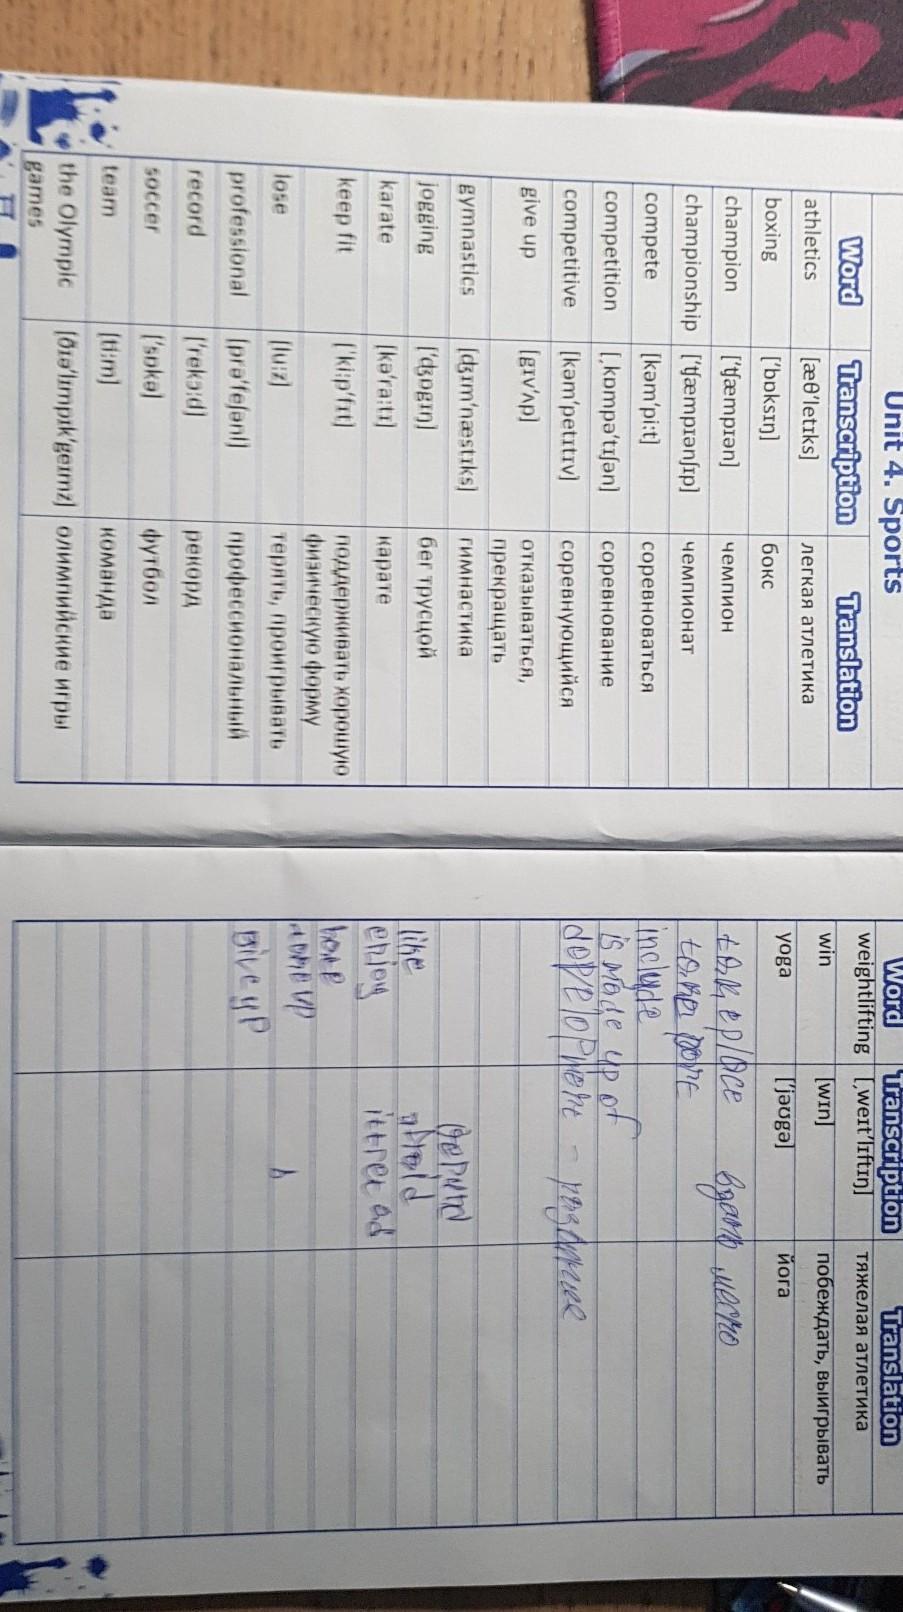 Unit 4. Sports
Word Transcription Translation
athletics [æθ'letɪks] легкая атлетика
boxing ['bɒksɪŋ] бокс
champion ['ʧæmpɪən] чемпион
championship ['ʧæmpɪənʃɪp] чемпионат
compete [kəm'pi:t] соревноваться
competition [ˌkɒmpə'tɪʃən] соревнование
competitive [kəm'petɪtɪv] соревнующийся
give up [gɪv'ʌp] отказываться,
прекращать
gymnastics [ʤɪm'næstɪks] гимнастика
jogging ['ʤɒgɪŋ] бег трусцой
karate [kə'rɑ:tɪ] карате
keep fit ['ki:p'fɪt] поддерживать хорошую
физическую форму
lose [lu:z] терять, проигрывать
professional [prə'feʃənl] профессиональный
record ['rekɔ:d] рекорд
soccer ['sɒkə] футбол
team [ti:m] команда
the Olympic [ðɪə'lɪmpɪk'geɪmz] олимпийские игры
games
Word Transcription Translation
weightlifting [ˌweɪt'lɪftɪŋ] тяжелая атлетика
win [wɪn] побеждать, выигрывать
yoga ['jəʊgə] йога
take place место
include
is made up of
like
enjoy
give up